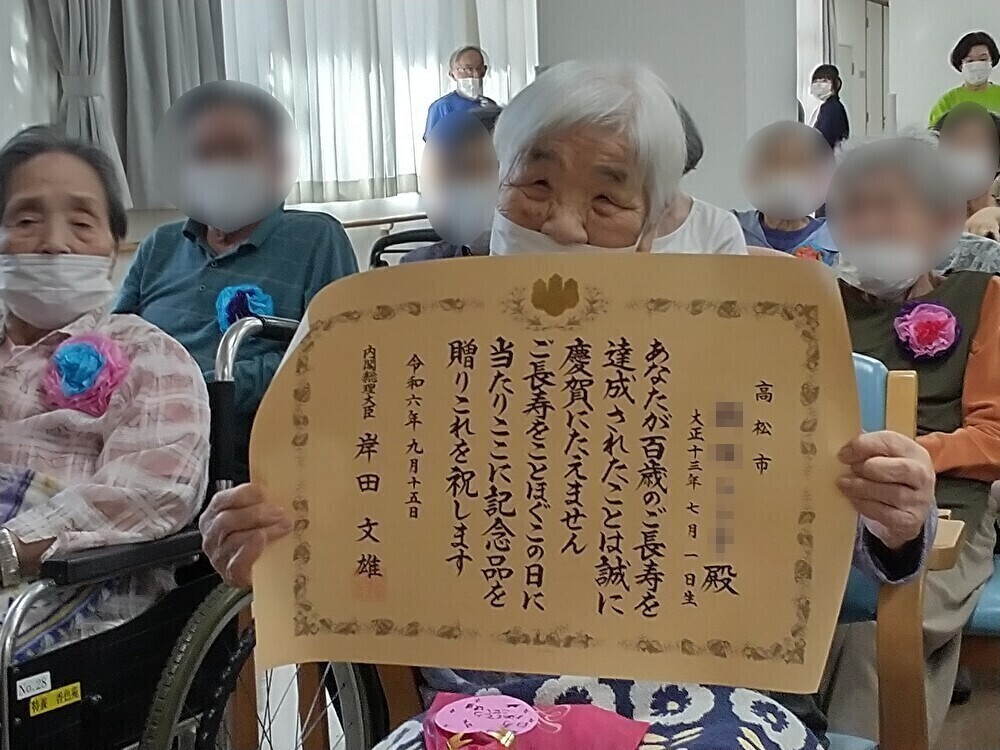 高松市
殿
大正十三年七月一日生
あなたが百歳のご長寿を
達成されたことは誠に
慶賀にたえません
ご長寿をことほぐこの日に
当たりここに記念品を
贈りこれを祝します
令和六年九月十五日
内閣総理大臣 岸田文雄
No.28
特養 香色苑